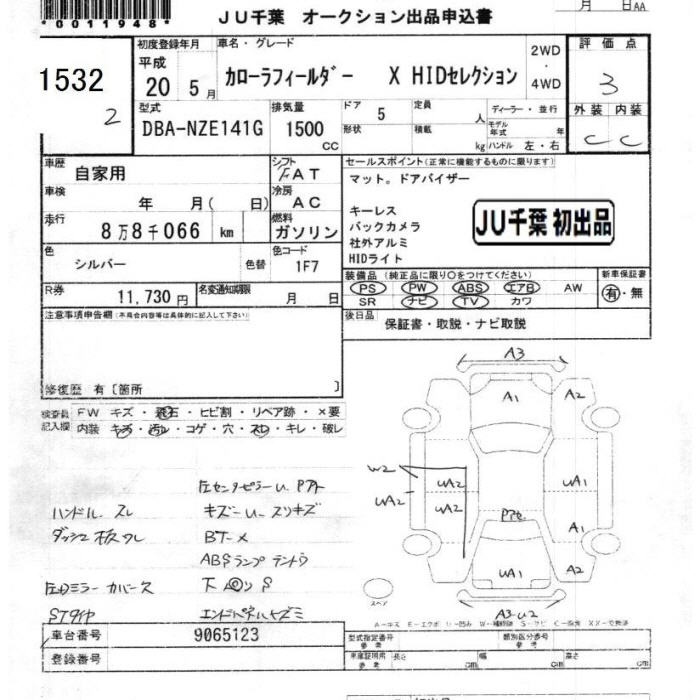 *0011948*
JU千葉 オークション出品申込書
月 日AA
1532
2
初度登録年月
平成
20 5月
車名・グレード
カローラフィールダー X HIDセレクション
2WD
・
4WD
評価点
3
型式
DBA-NZE141G
排気量
1500
CC
ドア
5
形状
定員
人
積載
kg
ディーラー・並行
モデル年式 年
ハンドル 左・右
外装 内装
C C
車歴
自家用
シフト
FAT
車検
年 月( 日)
冷房
AC
走行
8万8千066 km
燃料
ガソリン
色
シルバー
色替
色コード
1F7
R券
11,730円
名変通知期限
月 日
セールスポイント(正常に機能するものに限ります)
マット。ドアバイザー
キーレス
バックカメラ
社外アルミ
HIDライト
JU千葉 初出品
装備品(純正品に限り○をつけてください)
PS PW ABS エアB AW
SR ナビ TV カワ
新車保証書
有・無
後日品
保証書・取説・ナビ取説
注意事項申告欄(不具合内容等は具体的に記入して下さい)
修復歴 有[箇所 ]
検査員記入欄
FW キズ・飛石・ヒビ割・リペア跡・×要
内装 キズ・汚レ・コゲ・穴・スレ・キレ・破レ
ハンドル スレ
キズ
BT-×
ABSランプ テントウ
STタイヤ
A3
A1
A2
W2
UA2
UA2
UA1
UA2
A1
UA1
A2
A3-U2
スペア
車台番号
9065123
登録番号
型式指定番号
参考
類別区分番号
参考
車庫証明用
参考
長さ cm
幅 cm
高さ cm